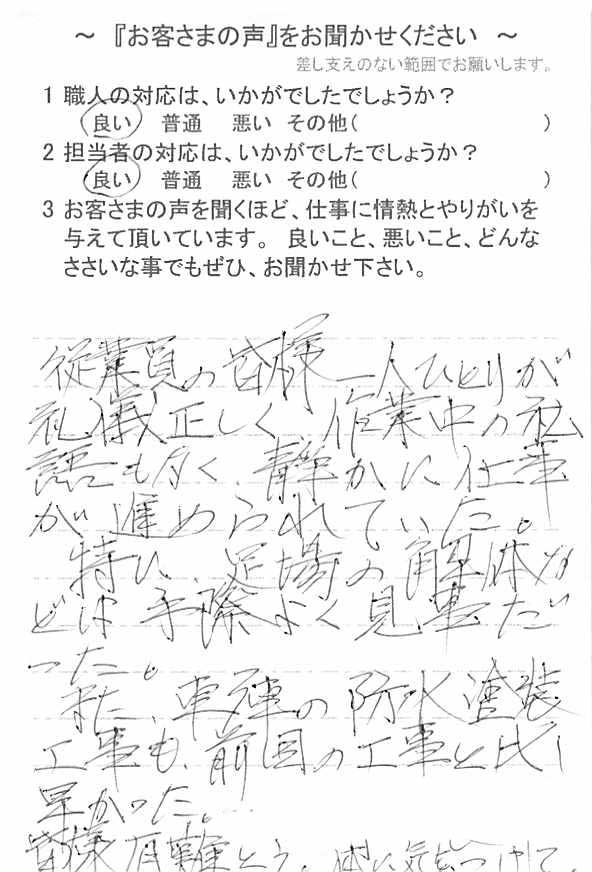 ～ 『お客さまの声』をお聞かせください ～
差し支えのない範囲でお願いします。
1 職人の対応は、いかがでしたでしょうか？
良い 普通 悪い その他( )
2 担当者の対応は、いかがでしたでしょうか？
良い 普通 悪い その他( )
3 お客さまの声を聞くほど、仕事に情熱とやりがいを
与えて頂いています。 良いこと、悪いこと、どんな
ささいな事でもぜひ、お聞かせ下さい。
従業員の皆様一人ひとりが
礼儀正しく、作業中の私
語もなく、静かに仕事
が進められていた。
特に、足場の解体な
どは手際よく見事だ
った。
また、車庫の防水塗装
工事も、前回の工事と比し
早かった。
皆様有難とう。体に気をつけて。